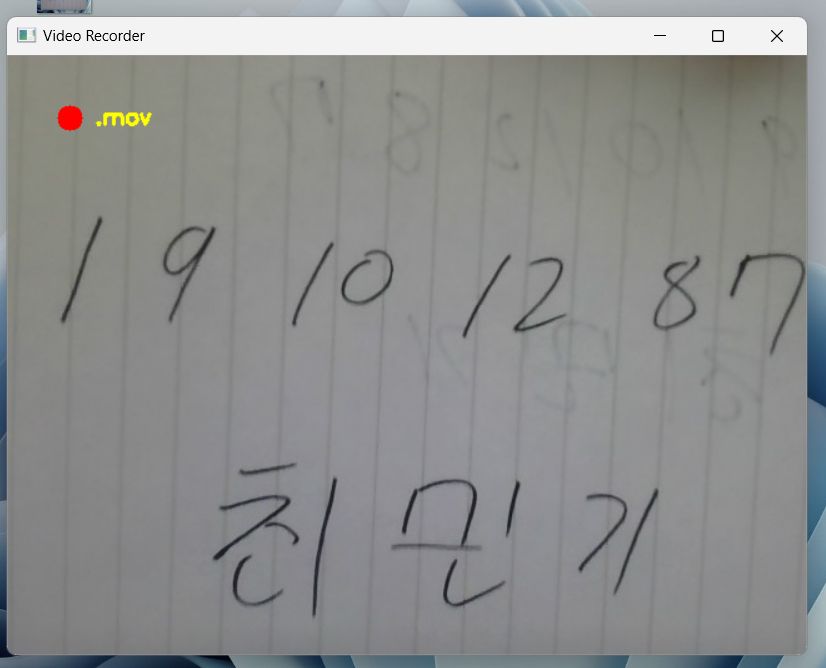 Video Recorder
.mov
1 9 10 12 87
친 민 기